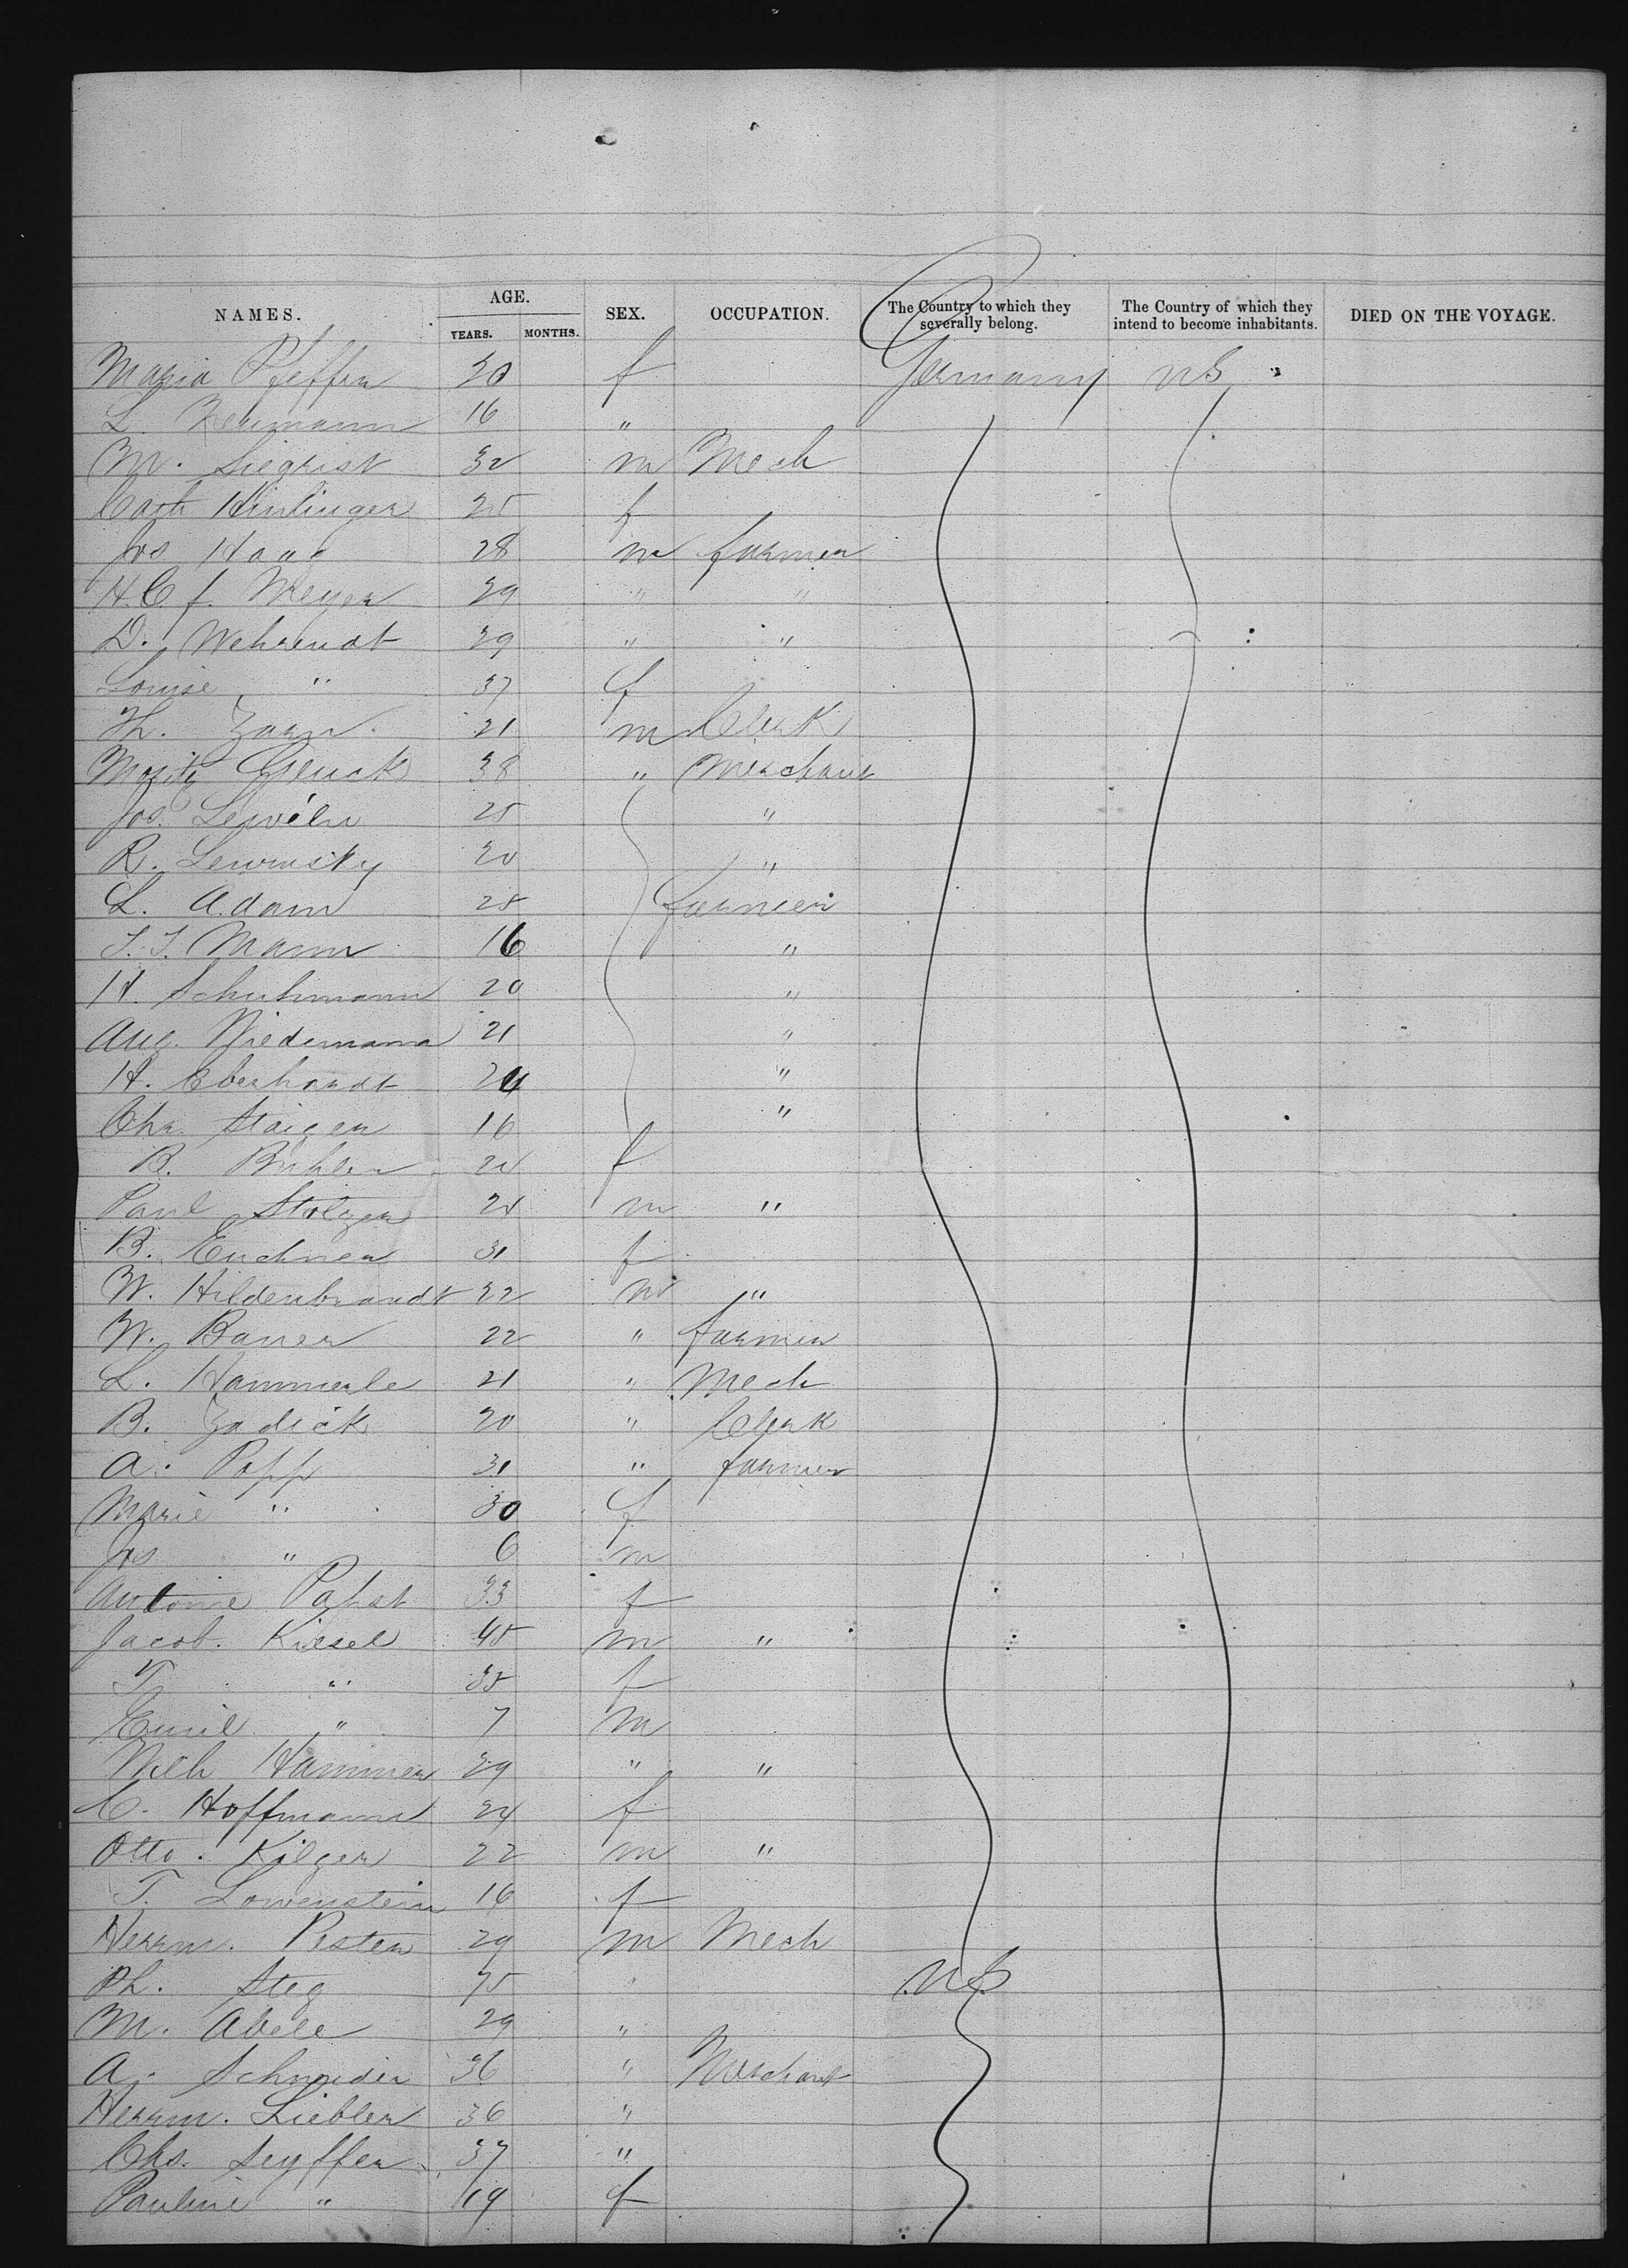 NAMES. AGE. SEX. OCCUPATION. The Country to which they severally belong. The Country of which they intend to become inhabitants. DIED ON THE VOYAGE.
YEARS. MONTHS.
Maria Pfeffer 20 f Germany US
L. Neumann 16 "
M. Siegrist 32 m Mech
Cath 25 f
Jos Haag 28 m farmer
H. C. f. Meyer 29 " "
D. Wehrendt 39 " "
Louise " 37 f
Th. Zorn 21 m Clerk
Moritz Gluck 38 " Merchant
Jos. 25 "
R. Lewinsky 20 "
L. Adam 25 farmer
J. J. Mann 16 "
H. Schuhmann 20 "
Aug. Wiedemann 21 "
H. Eberhardt 24 "
Chr. Staiger 16 "
B. Buhler 24 f
Paul Stolzer 24 m "
B. Euchner 31 f
W. Hildenbrandt 22 m "
W. Bauer 22 " farmer
L. Hammerle 21 " Mech
B. Zadick 20 " Clerk
A. Popp 31 " farmer
Marie " 30 f
Jos " 6 m
Antonie Pabst 33 f
Jacob. Kiesel 45 m "
T. " 35 f
Emil " 7 m
Wilh Hammer 29 " "
C. Hoffmann 24 f
Otto. Kilger 22 m "
T. Lowenstein 16 f
Herrm. Pester 29 m Mech
Ph. Steg 75 " US
M. Abele 29 "
A. Schneider 36 " Merchant
Herrm. Liebler 36 "
Chs. Seyffer 37 "
Pauline " 19 f